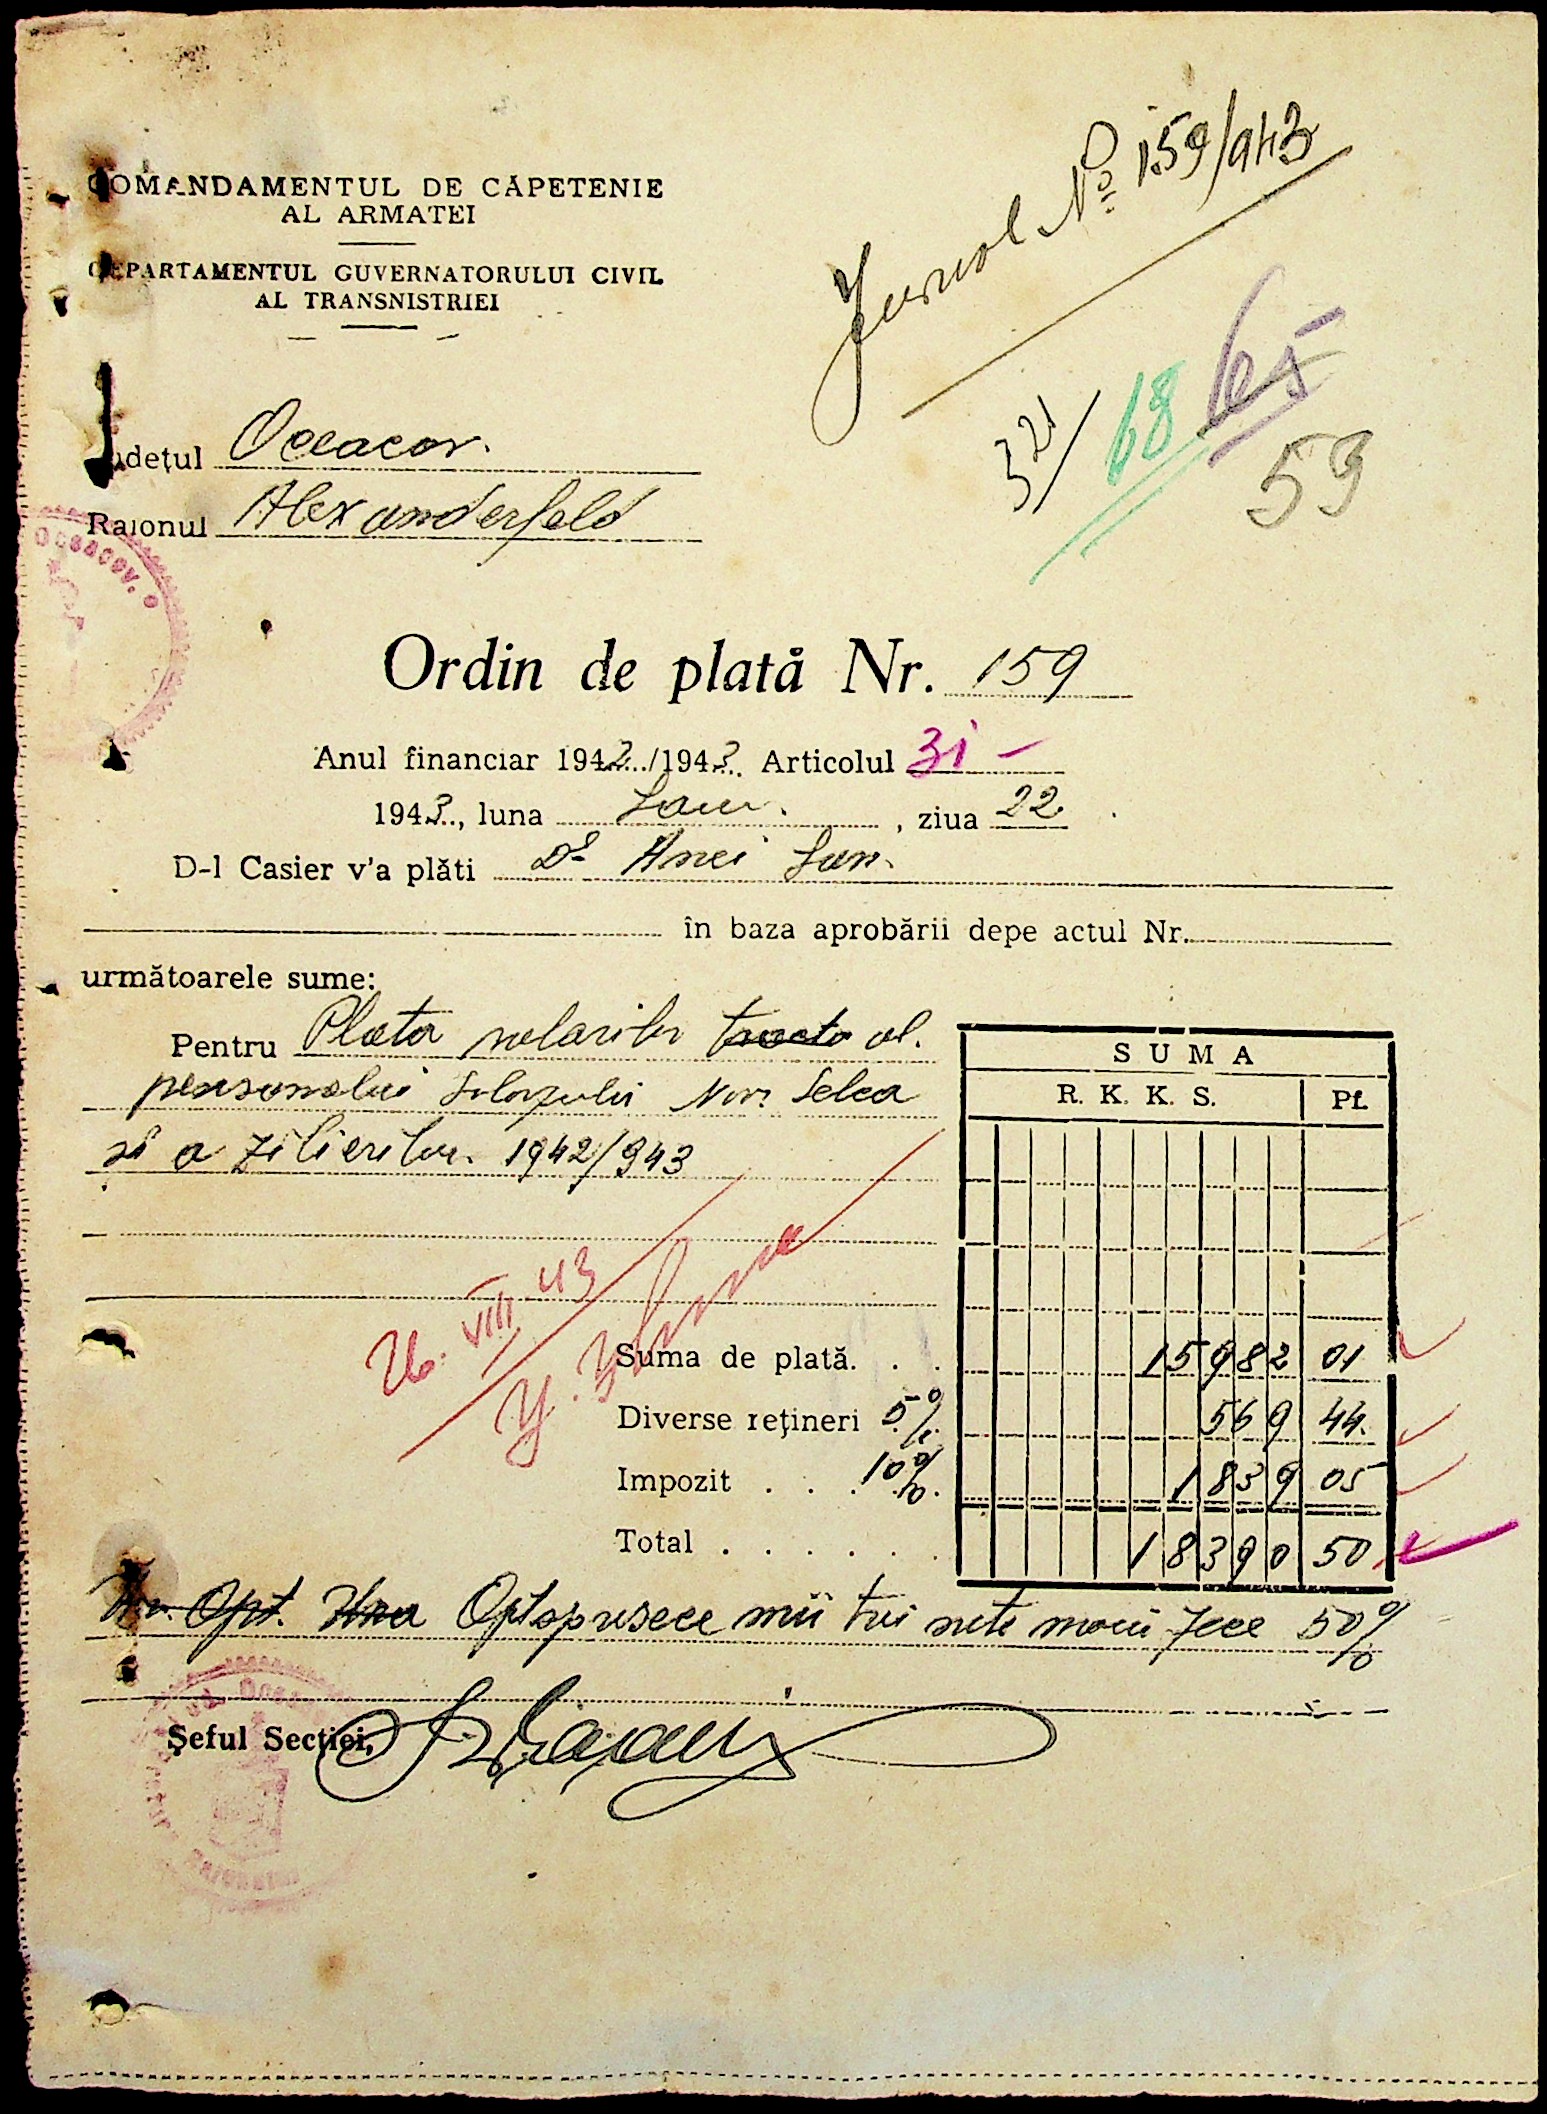 COMANDAMENTUL DE CĂPETENIE
AL ARMATEI
DEPARTAMENTUL GUVERNATORULUI CIVIL
AL TRANSNISTRIEI
Jurnol No 159/943
321/ 68 65
59
Județul Oceacov.
Raionul Alexanderfeld
Oceacov.
Ordin de plată Nr. 159
Anul financiar 1942../1943.. Articolul 31 -
1943.., luna Ianu. , ziua 22.
D-l Casier v'a plăti Dl Anei Ion.
în baza aprobării depe actul Nr.
următoarele sume:
Pentru Plata salarilor al.
personalui Nov. Selca
si a zilierilor. 1942/943
SUMA
R. K. K. S. Pf.
26. VIII 43
Suma de plată. . . 15982 01
Diverse rețineri 5% 569 44.
Impozit . . . 10% 1839 05
Total . . . . . . 18390 50
Opt. Una Optsprsece mii trei sute nouă zece 50%
Șeful Secției,